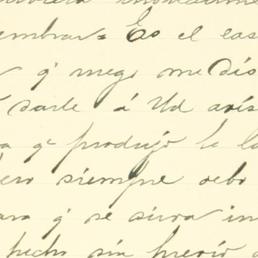 embrar = Es el cas
qe mego me dis
darle á Ud avis
a qe produjo le la
ero siempre debo
ara qe se sirva in
hecho sin previo